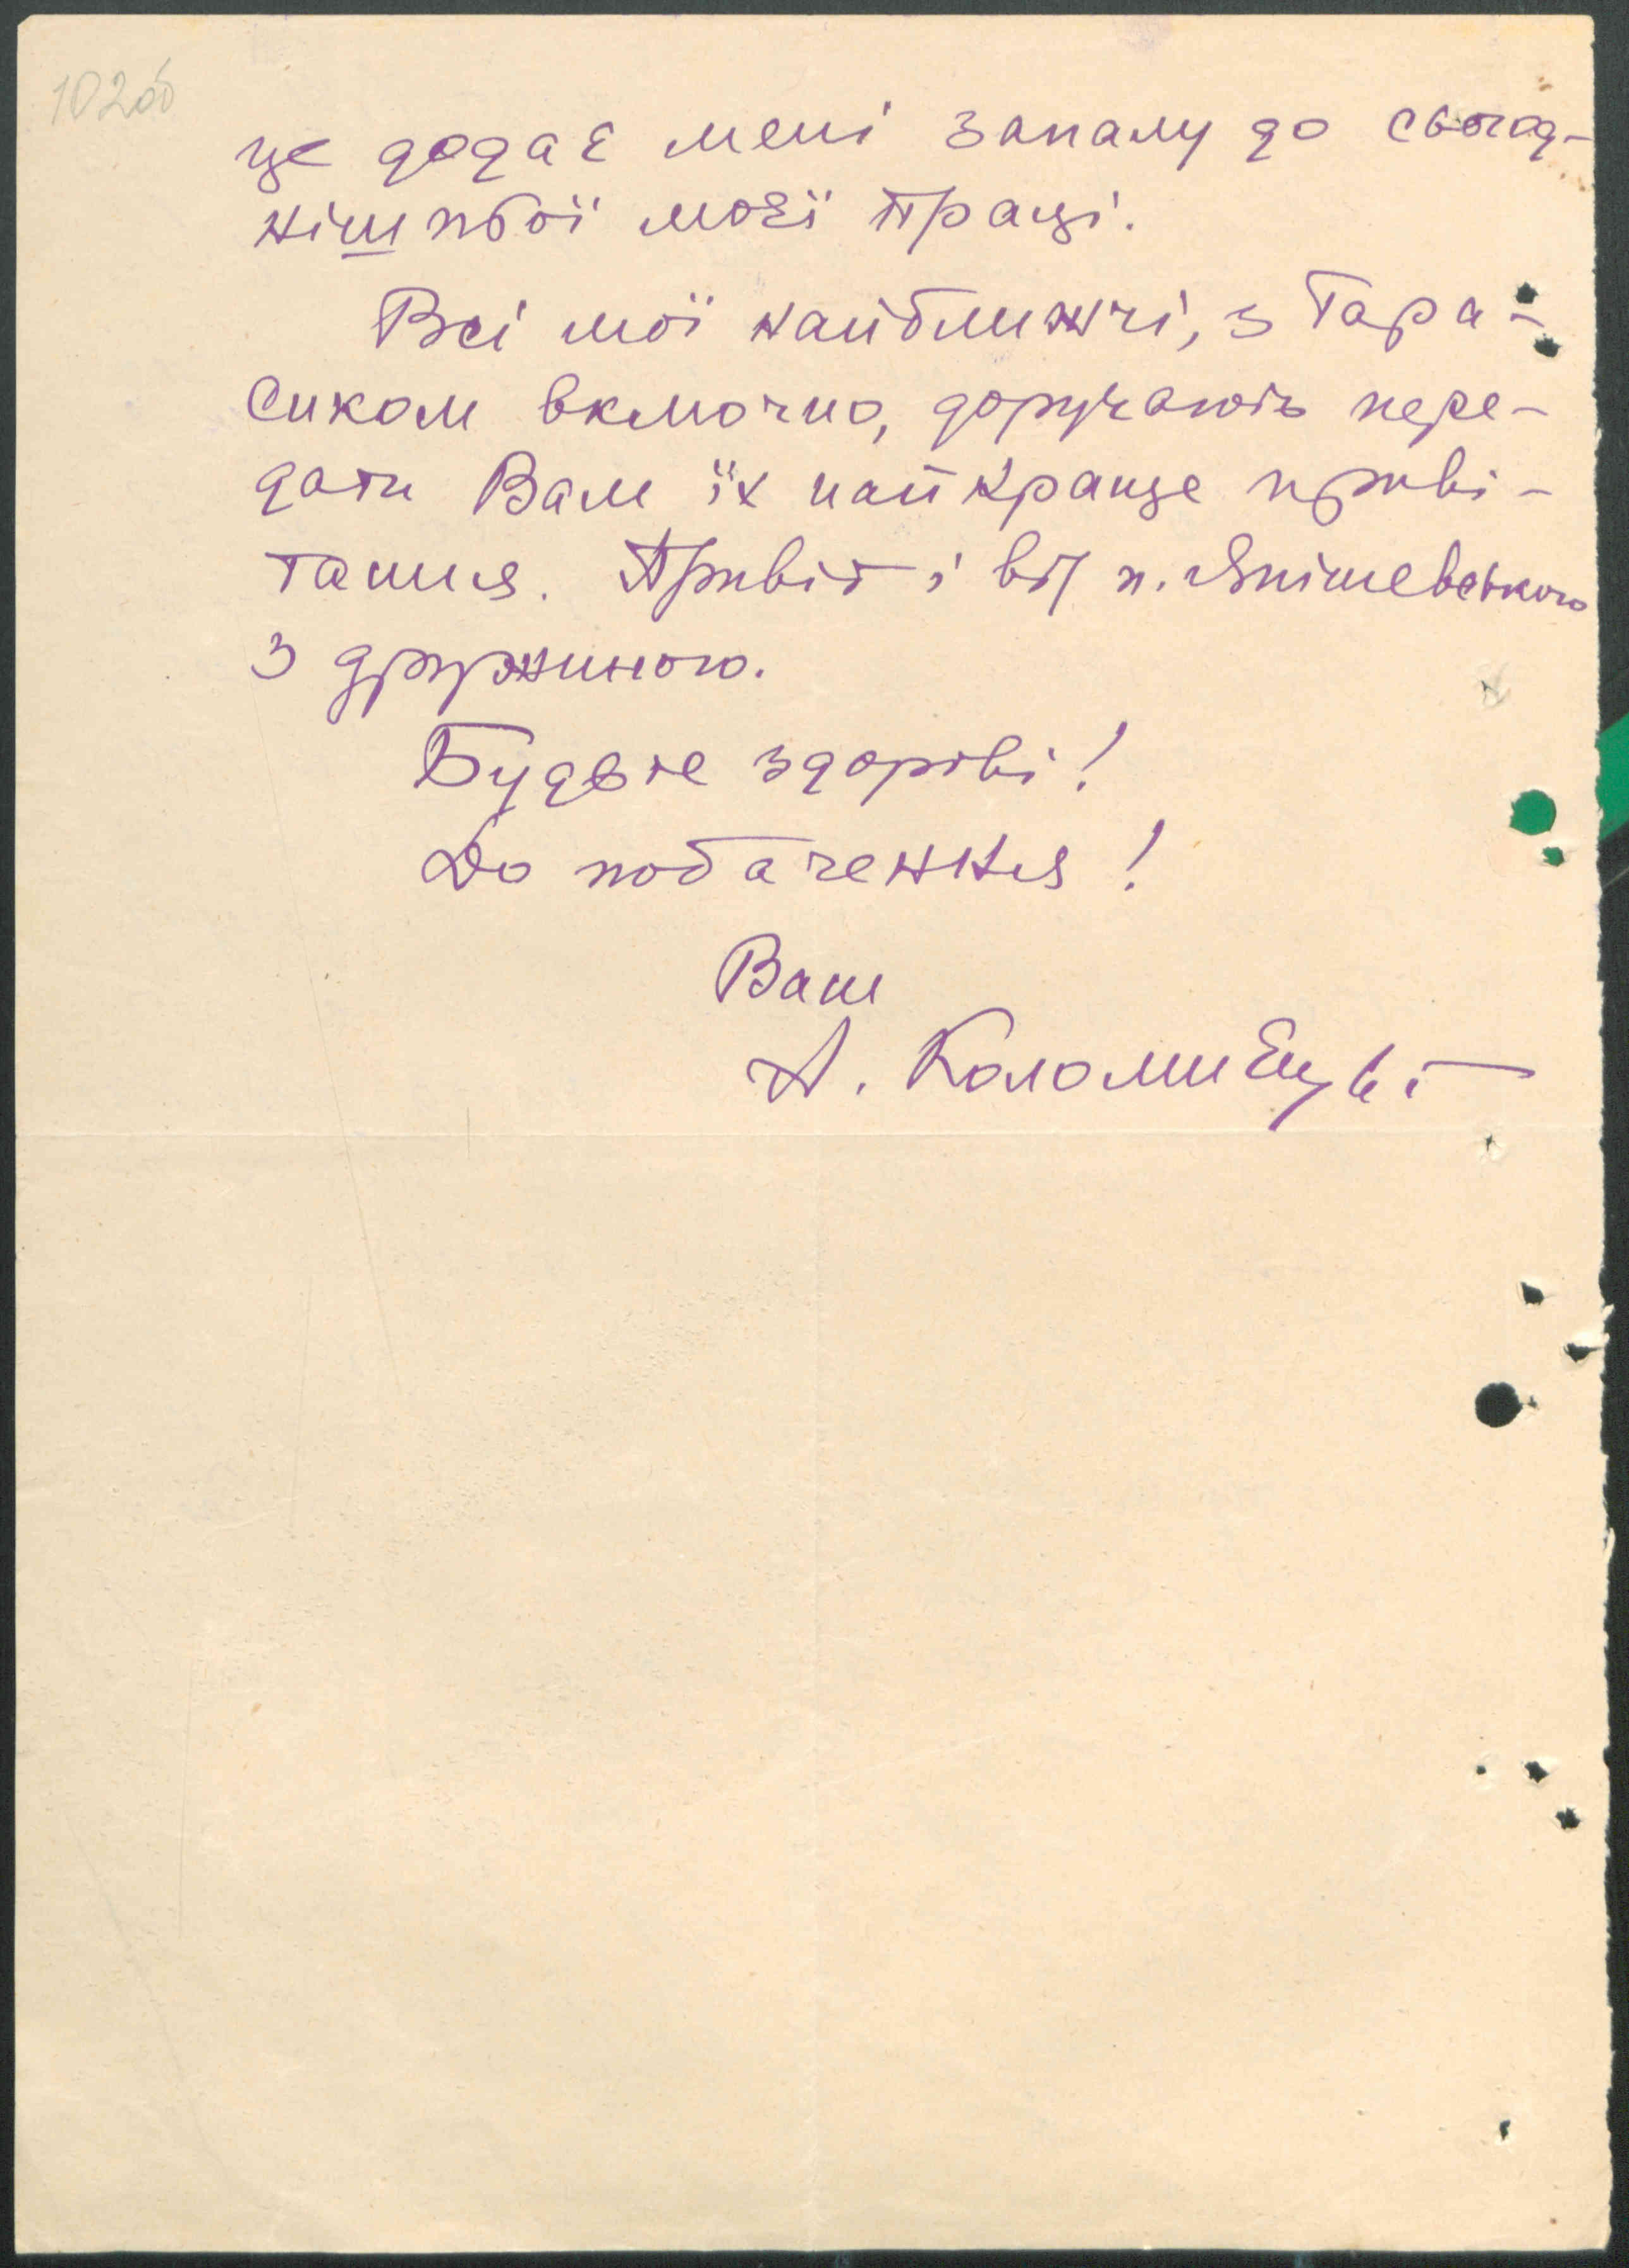 102об
це додає мені запалу до сьогод-
нішньої моєї праці.
Всі мої найближчі, з Тара-
сиком включно, доручають пере-
дати Вам їх найкраще приві-
тання. Привіт і від п. Янішевського
з дружиною.
Будьте здорові!
До побачення!
Ваш
А. Коломиєць